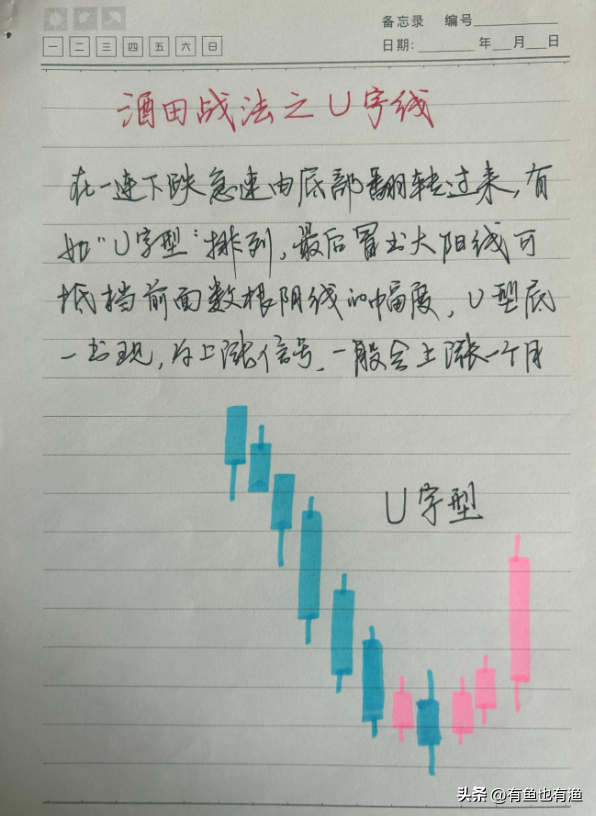 备忘录 编号
一 二 三 四 五 六 日
日期: 年 月 日
酒田战法之U字线
在一连下跌急速由底部翻转过来,有
如"U字型"排列,最后冒出大阳线可
抵挡前面数根阴线的幅度,U型底
一出现,为上涨信号、一般会上涨一个月
U字型
头条 @有鱼也有渔